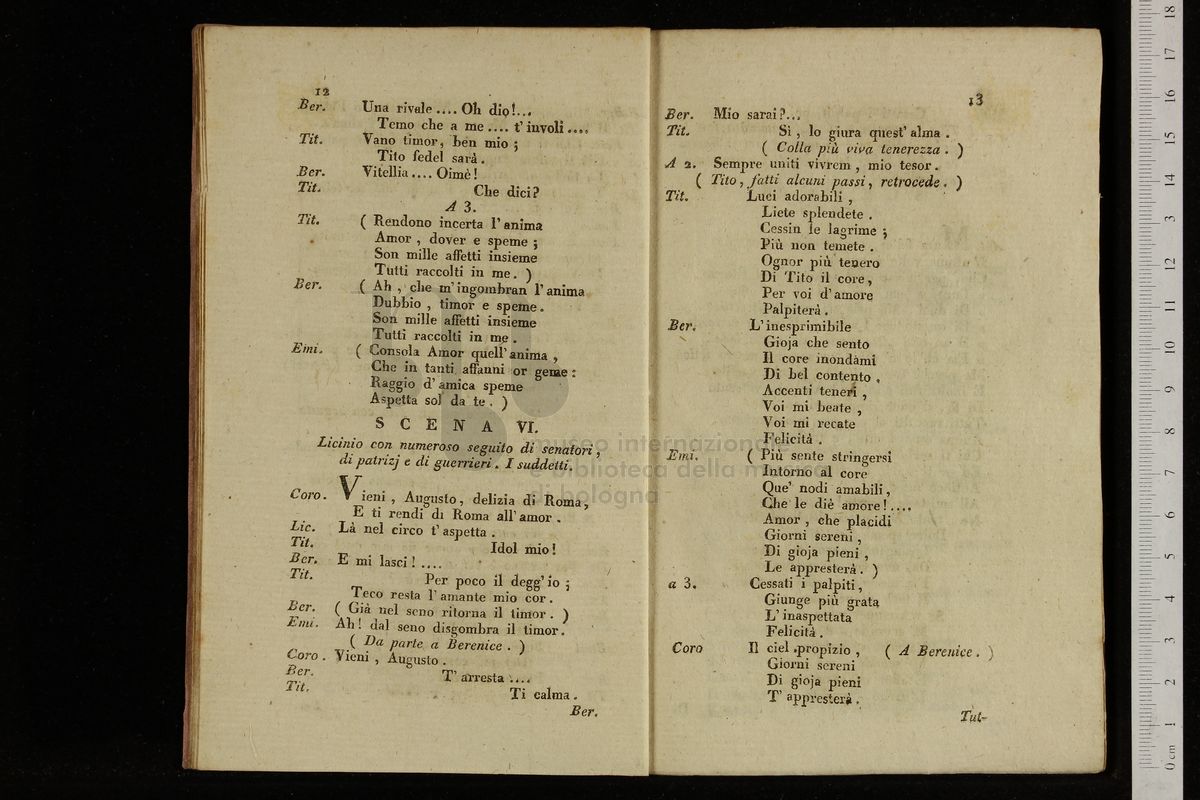 12
Ber. Una rivale .... Oh dio!...
Temo che a me .... t' involi ....
Tit. Vano timor, ben mio ;
Tito fedel sarà .
Ber. Vitellia .... Oimè !
Tit. Che dici ?
A 3.
Tit. ( Rendono incerta l' anima
Amor , dover e speme ;
Son mille affetti insieme
Tutti raccolti in me . )
Ber. ( Ah , che m' ingombran l' anima
Dubbio , timor e speme .
Son mille affetti insieme
Tutti raccolti in me .
Emi. ( Consola Amor quell' anima ,
Che in tanti affanni or geme :
Raggio d' amica speme
Aspetta sol da te . )
SCENA VI.
Licinio con numeroso seguito di senatori ,
di patrizj e di guerrieri . I suddetti .
Coro. Vieni , Augusto, delizia di Roma,
E ti rendi di Roma all' amor .
Lic. Là nel circo t' aspetta .
Tit. Idol mio !
Ber. E mi lasci ! ....
Tit. Per poco il degg' io ;
Teco resta l' amante mio cor .
Ber. ( Già nel seno ritorna il timor . )
Emi. Ah ! dal seno disgombra il timor .
( Da parte a Berenice . )
Coro . Vieni , Augusto .
Ber. T' arresta ....
Tit. Ti calma .
Ber.
13
Ber. Mio sarai ?...
Tit. Sì , lo giura quest' alma .
( Colla più viva tenerezza . )
A 2. Sempre uniti vivrem , mio tesor .
( Tito , fatti alcuni passi , retrocede . )
Tit. Luci adorabili ,
Liete splendete .
Cessin le lagrime ;
Più non temete .
Ognor più tenero
Di Tito il core ,
Per voi d' amore
Palpiterà .
Ber. L' inesprimibile
Gioja che sento
Il core inondami
Di bel contento .
Accenti teneri ,
Voi mi beate ,
Voi mi recate
Felicità .
Emi. ( Più sente stringersi
Intorno al core
Que' nodi amabili ,
Che le diè amore ! ....
Amor , che placidi
Giorni sereni ,
Di gioja pieni ,
Le appresterà . )
a 3. Cessati i palpiti ,
Giunge più grata
L' inaspettata
Felicità .
Coro Il ciel propizio , ( A Berenice . )
Giorni sereni
Di gioja pieni
T' appresterà .
Tut-
museo internazionale
e biblioteca della musica
di bologna
0 cm 1 2 3 4 5 6 7 8 9 10 11 12 13 14 15 16 17 18